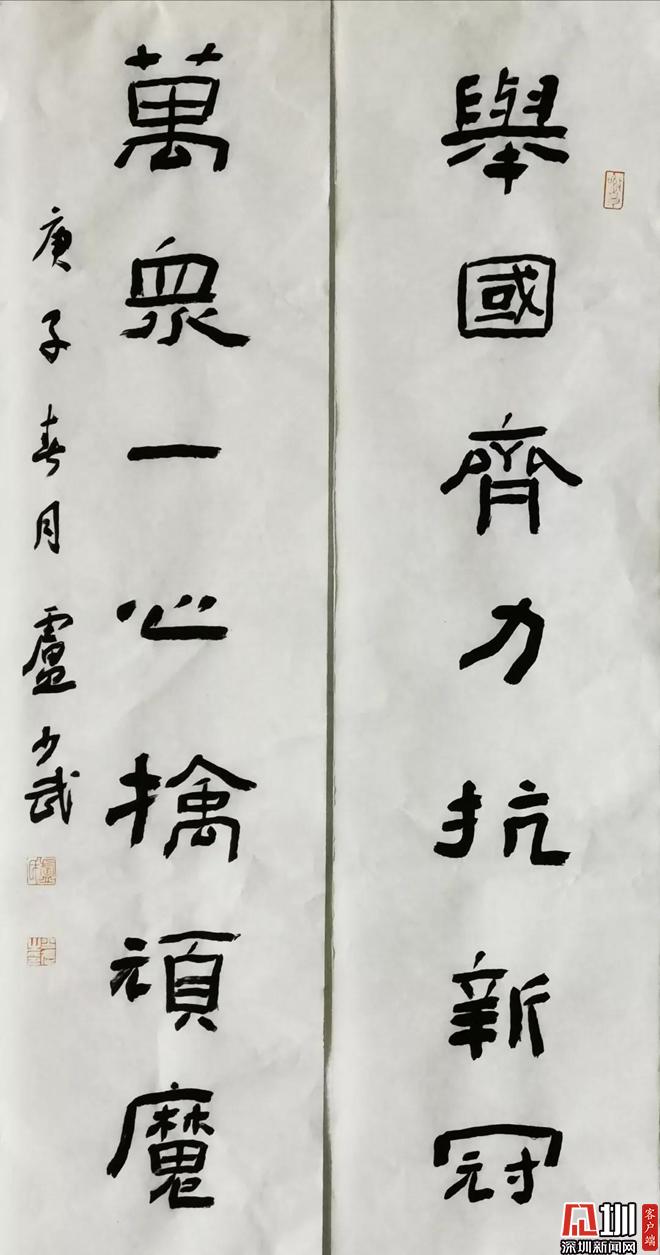 舉國齊力抗新冠
萬眾一心擒頑魔
庚子春月盧少武
圳
客户端
深圳新闻网